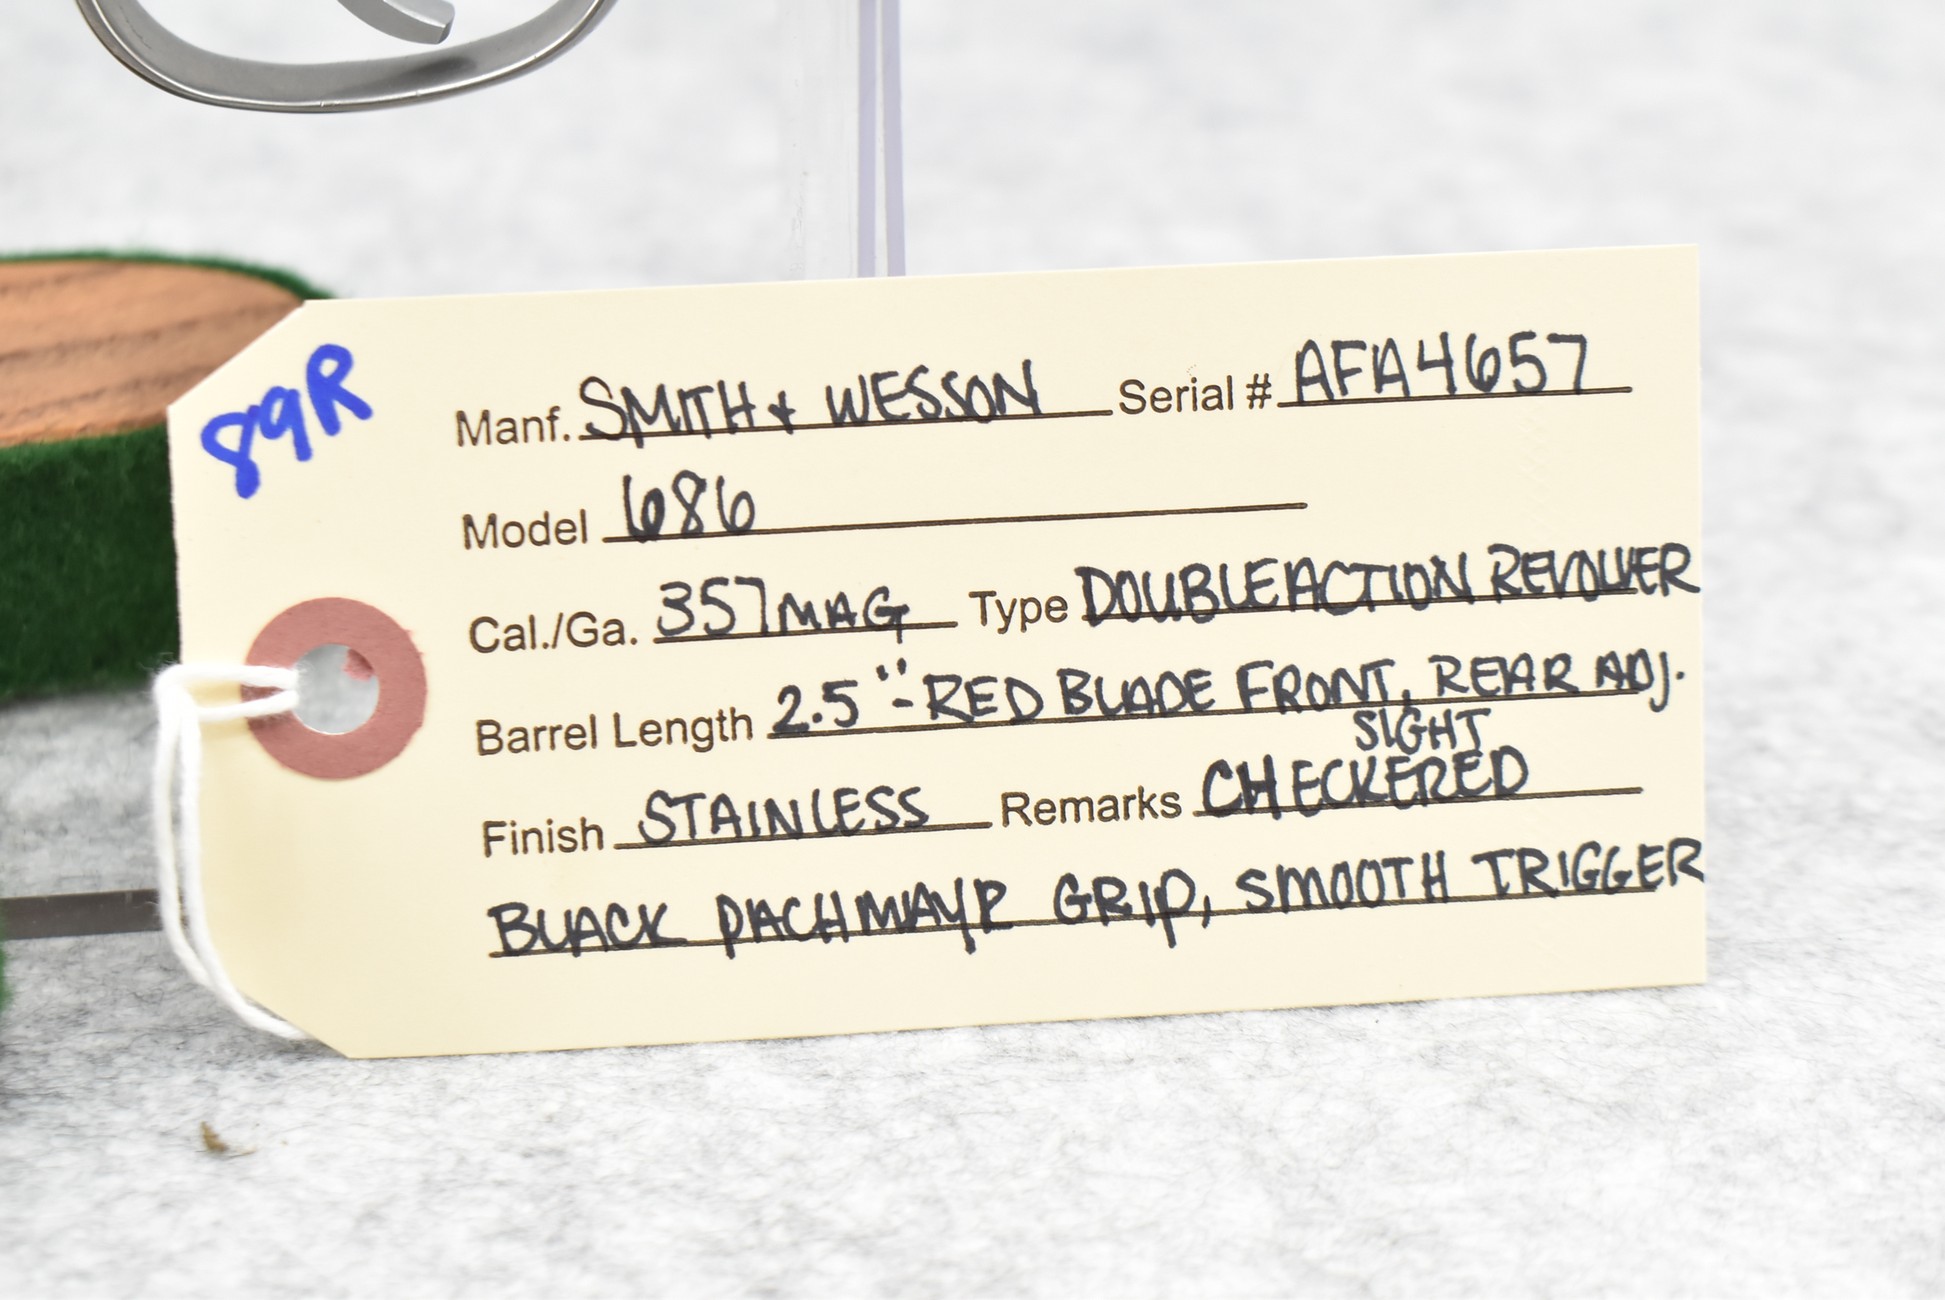 89R
Manf. SMITH + WESSON Serial # AFA4657
Model 686
Cal./Ga. 357 MAG Type DOUBLE ACTION REVOLVER
Barrel Length 2.5" - RED BLADE FRONT, REAR ADJ.
SIGHT
Finish STAINLESS Remarks CHECKERED
BLACK PACHMAYR GRIP, SMOOTH TRIGGER